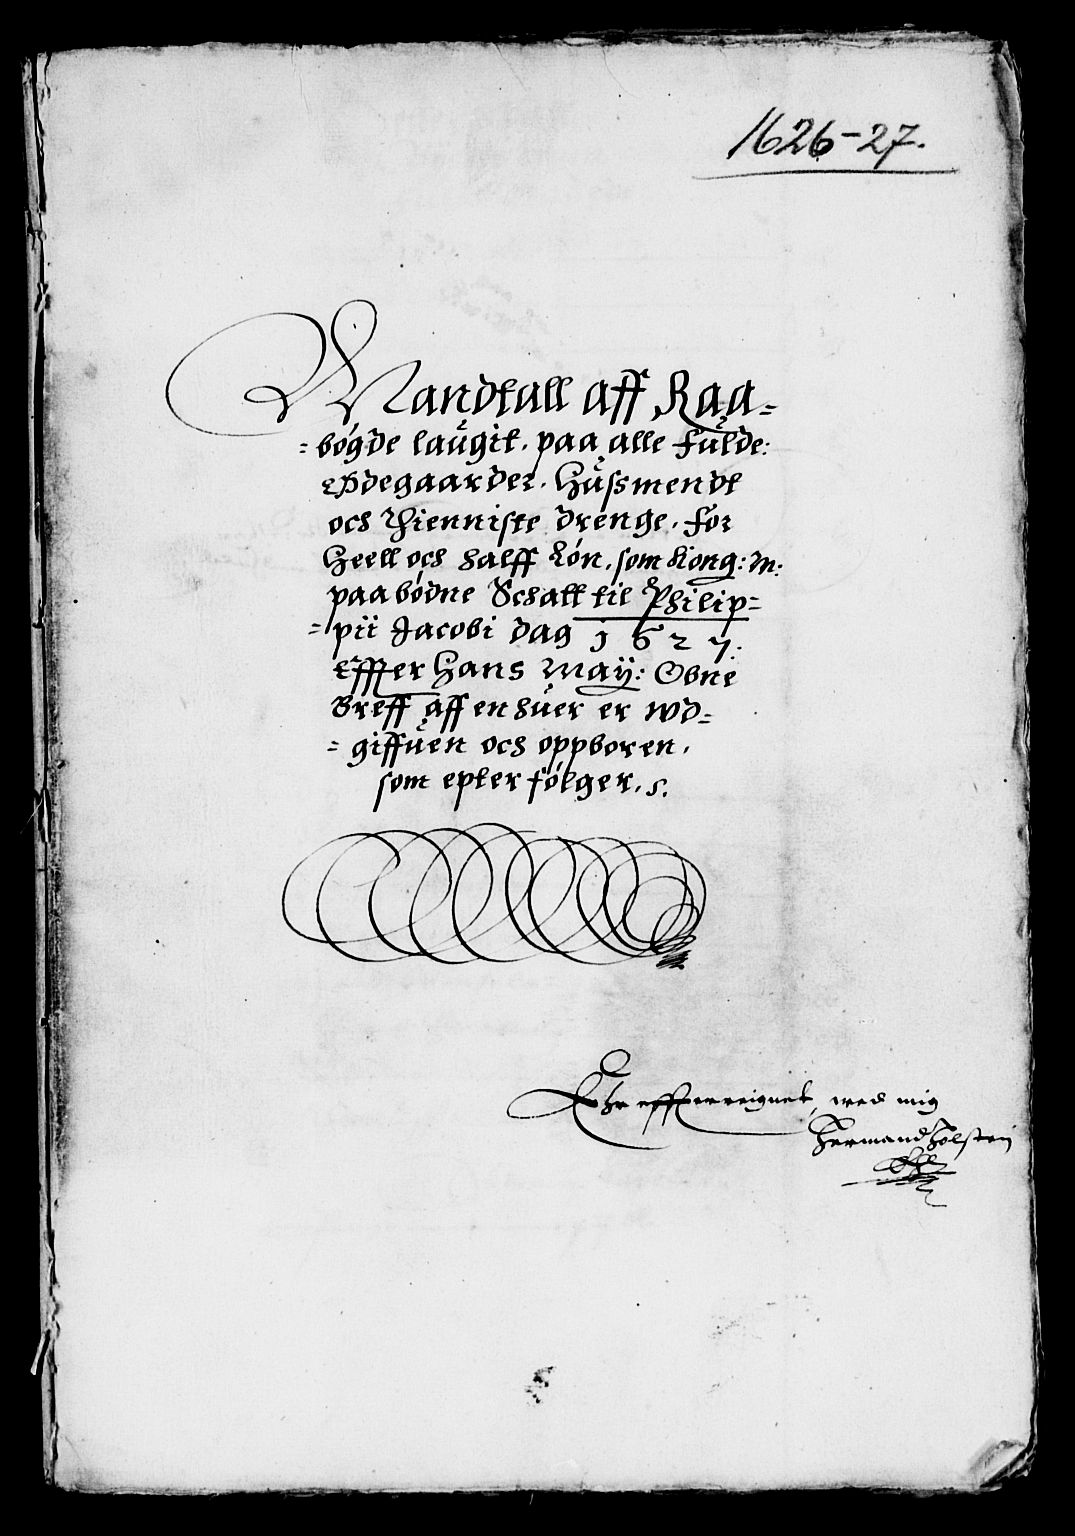 1626-27.
Mandtall aff Raa=
=bøgde laugit. paa alle fulde:
Ødegaarder. Hussmendt
och Thienniste drenge. for
Heell och halff Løn. som Kong: M:
paabødne Schatt til Philip=
=pii Jacobi dag 1627.
Effter Hans May: Obne
Breff aff en huer er wd=
=giffuen och oppboren.
som epter følger. s.
Ehr effterreignet, wed mig
Hermand Holstein